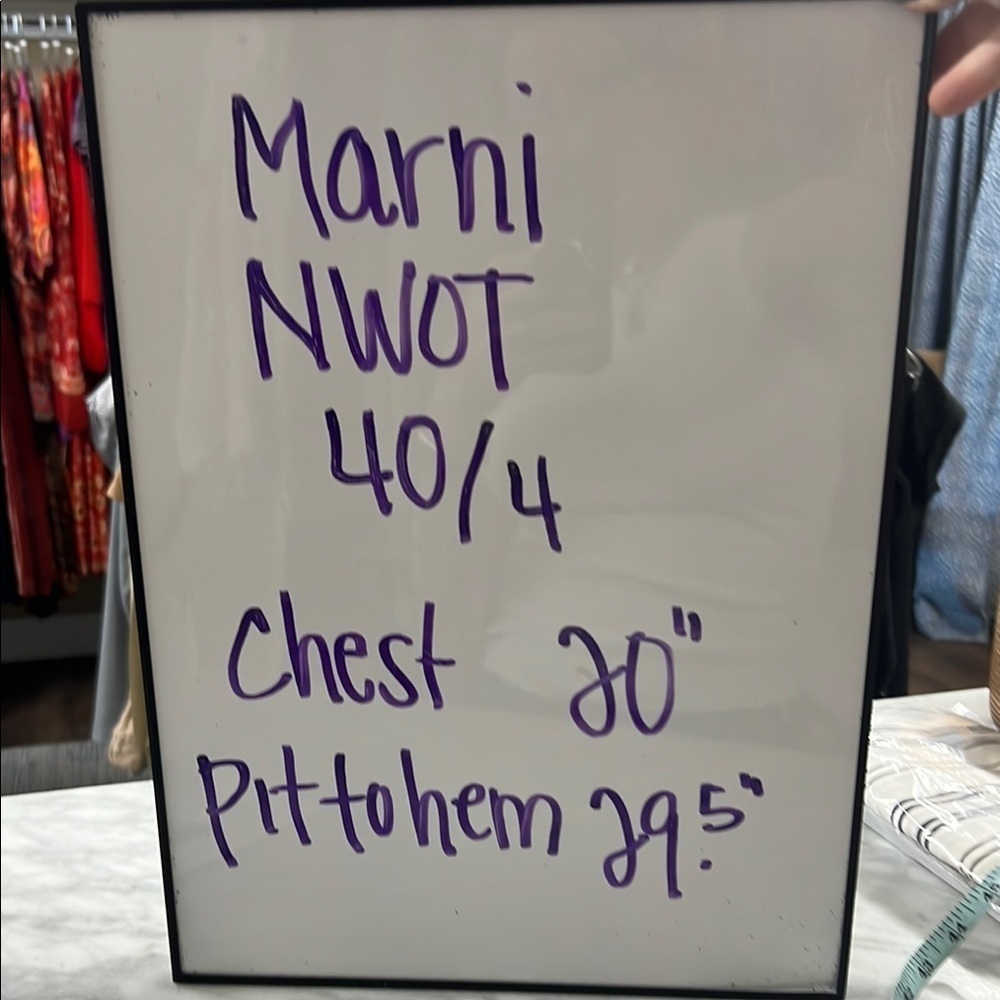 Marni
NWOT
40/4
Chest 20"
Pit to hem 29.5"